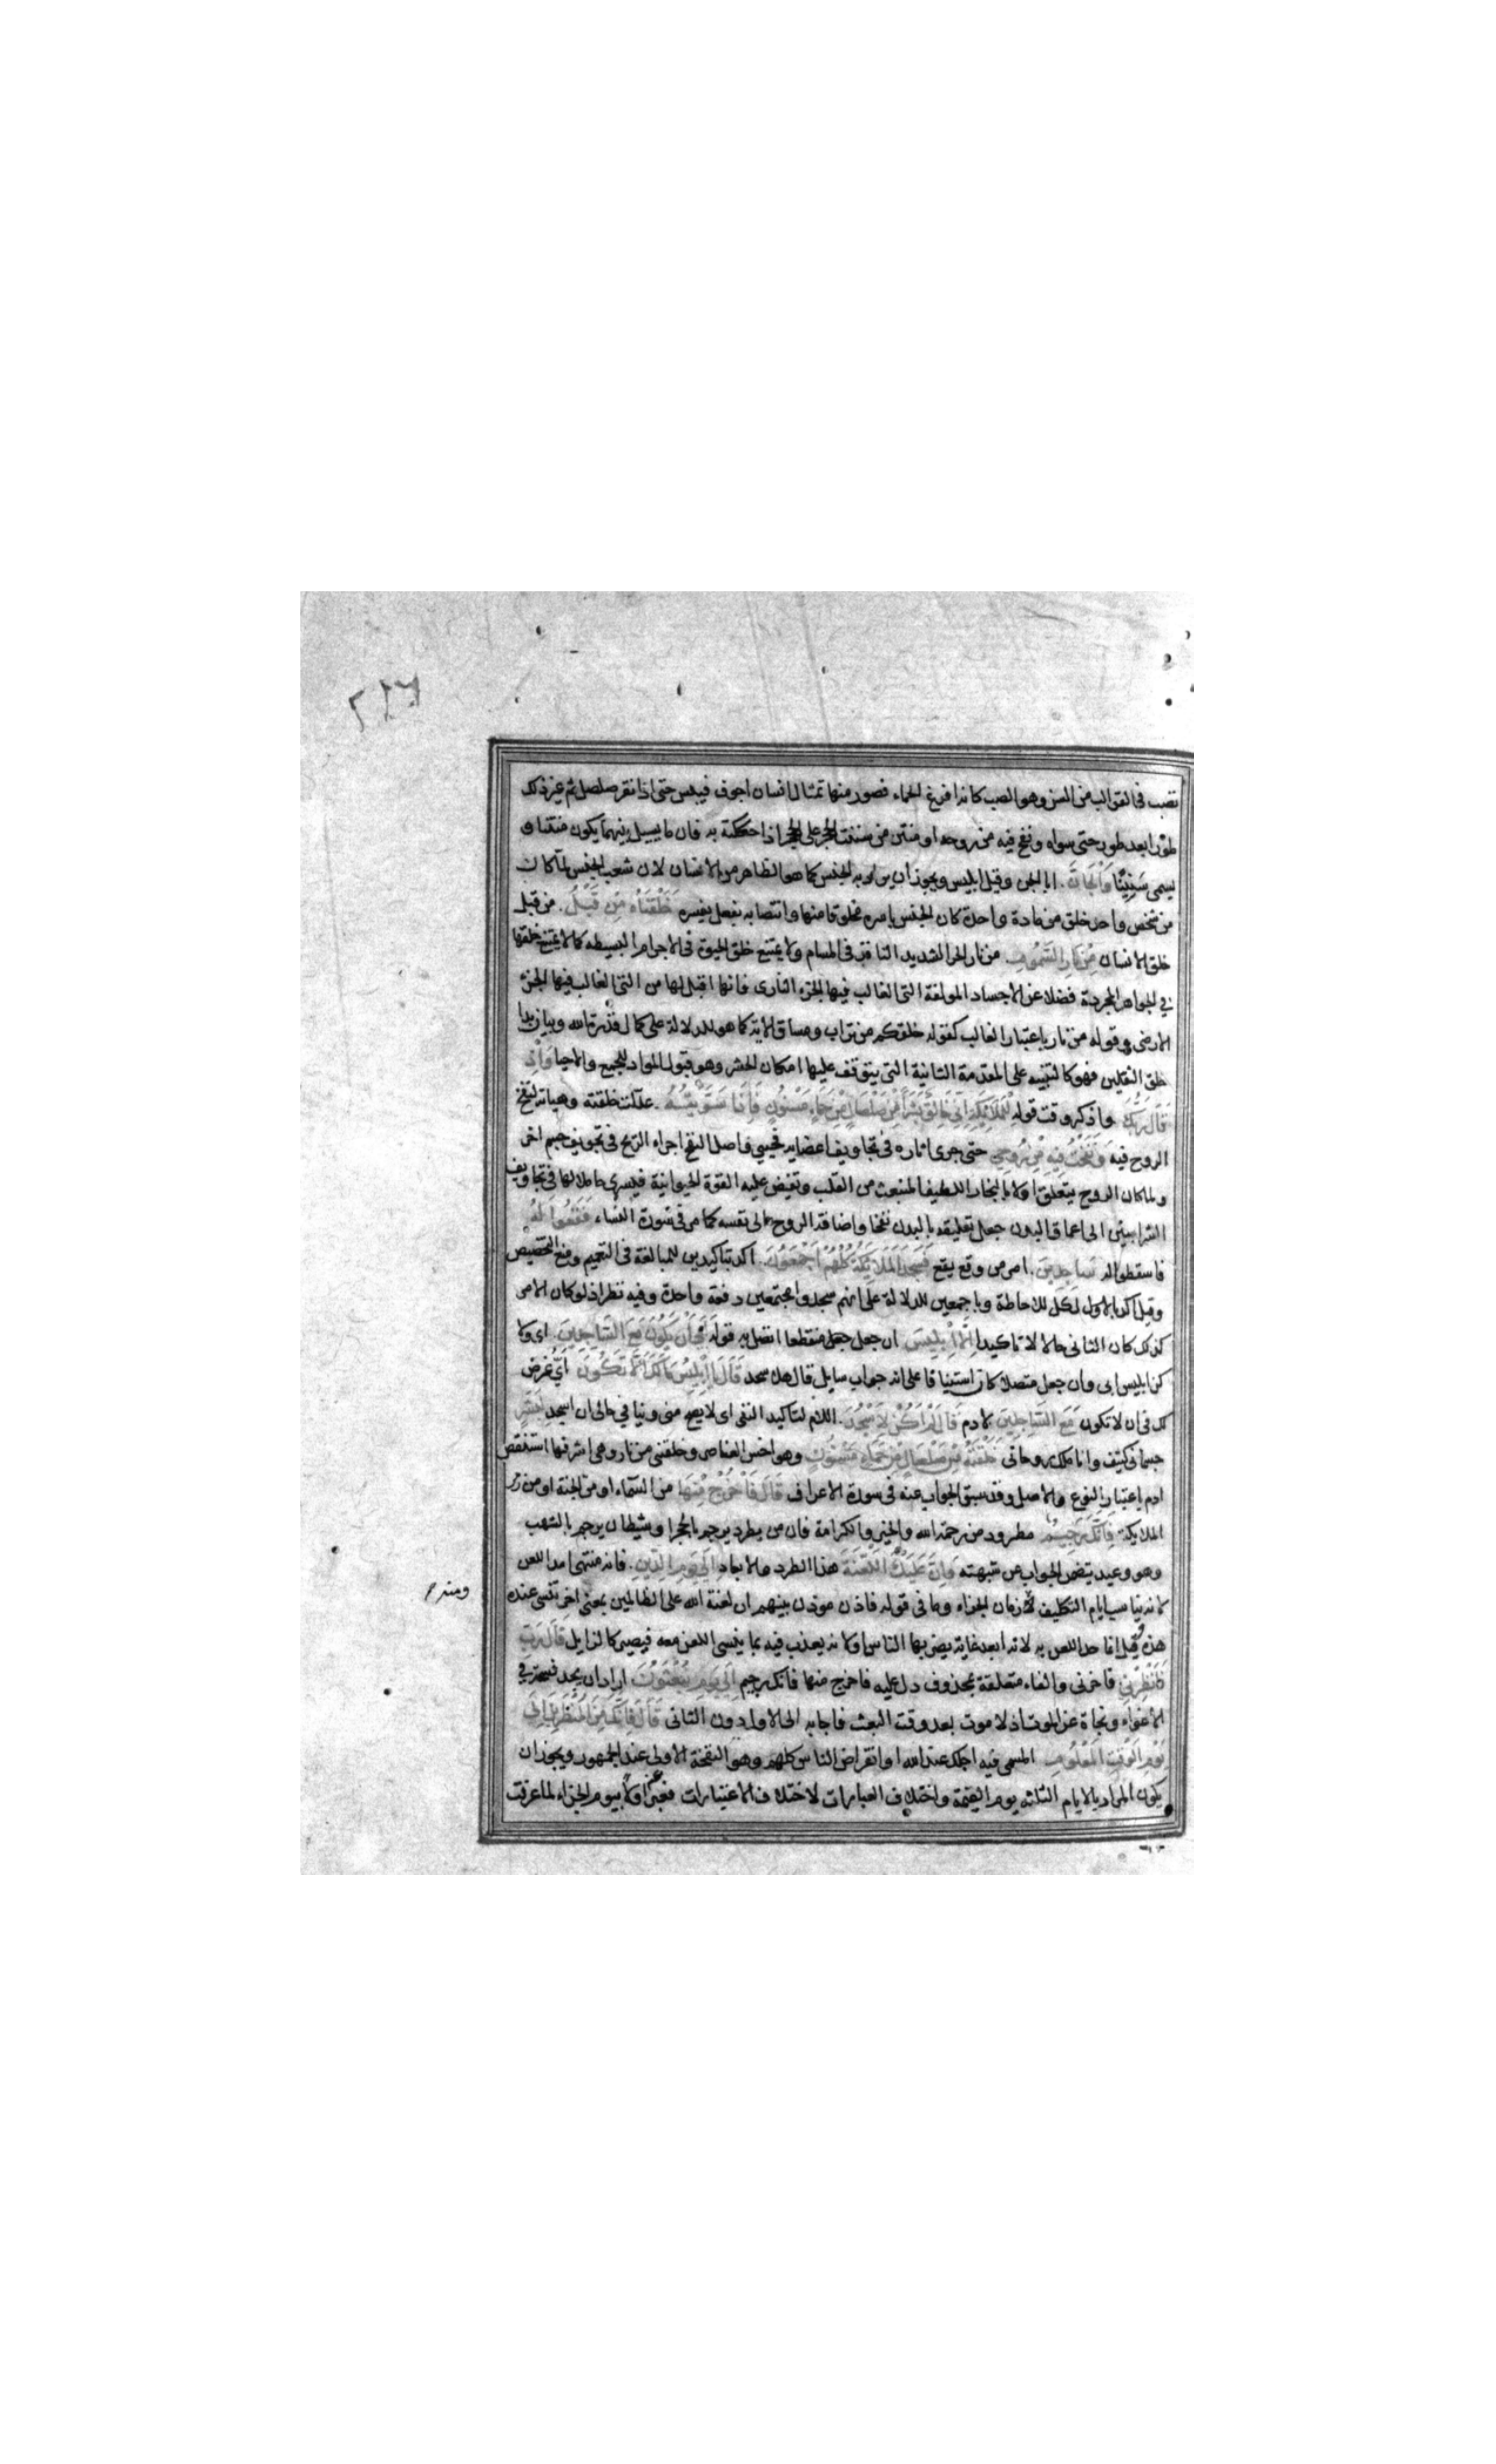 تصب في القوالب من السن وهو الصب كانه افرغ الحماء فصور منها تمثال انسان اجوف فيبس حتى اذا نقر صلصل ثم غير ذلك
طورا بعد طور حتى سواه ونفخ فيه من روحه او منتن من سننت الحجر على الحجر اذا حككته به فان ما يسيل بينهما يكون منتنا و
يسمى سنينا وَالْجَانَّ . ابا الجن وقيل ابليس ويجوز ان يراد به الجنس كما هو الظاهر من الانسان لان شعب الجنس لما كان
من شخص واحد خلق من مادة واحدة كان الجنس باسره مخلوقا منها وانتصابه بفعل يفسره خَلَقْنَاهُ مِنْ قَبْلُ . من قبل
خلق الانسان مِنْ نَارِ السَّمُومِ . من نار الحر الشديد النافذ في المسام ولا يمتنع خلق الحيوة في الاجرام البسيطه كما لا يمتنع خلقها
في الجواهر المجردة فضلا عن الاجساد المولفة التي الغالب فيها الجزء النارى فانها اقبل لها من التى الغالب فيها الجزء
الارضى وقوله من نار باعتبار الغالب كقوله خلقكم من تراب ومساق الاية كما هو للدلالة على كمال قدرة الله وبيان بدا
خلق الثقلين فهو كالتنبيه على المقدمة الثانية التي يتوقف عليها امكان الحشر وهو قبول المواد للجمع والاحيا وَاِذْ
قَالَ رَبُّكَ واذكر وقت قوله لِلْمَلَائِكَةِ اِنِّي خَالِقٌ بَشَرًا مِنْ صَلْصَالٍ مِنْ حَمَاءٍ مَسْنُونٍ فَاِذَا سَوَّيْتُهُ . عدلت خلقته وهياته لنفخ
الروح فيه وَنَفَخْتُ فِيهِ مِنْ رُوحِي حتى جرى اثاره في تجاويف اعضايه فحيي واصل النفخ اجراء الريح في تجويف جسم اخر
ولما كان الروح يتعلق اولا بالبخار اللطيف المنبعث من القلب وتفيض عليه القوة الحيوانية فيسرى حاملا لها في تجاويف
الشرايين الى اعماق البدن جعل تعليقه بالبدن نفخا واضافة الروح الى نفسه كما مر في سورة النساء فَقَعُوا لَهُ
فاسقطوا له سَاجِدِينَ . امر من وقع يقع فَسَجَدَ الْمَلَائِكَةُ كُلُّهُمْ اَجْمَعُونَ . اكد بتاكيدين للمبالغة في التعميم ومنع التخصيص
وقيل اكد بالاول لكل للاحاطة وباجمعين للدلالة على انهم سجدوا مجتمعين دفعة واحدة وفيه نظر اذ لو كان الامر
كذلك كان الثاني حالا لا تاكيدا اِلَّا اِبْلِيسَ ان جعل منقطعا اتصل به قوله اَبَى اَنْ يَكُونَ مَعَ السَّاجِدِينَ . اى ولا
كن ابليس ابى وان جعل متصلا كان استينافا على انه جواب سايل قال هلا سجد قَالَ يَا اِبْلِيسُ مَا لَكَ اَلَّا تَكُونَ اىّ غرض
لك في ان لا تكون مَعَ السَّاجِدِينَ لادم قَالَ لَمْ اَكُنْ لِاَسْجُدَ . اللام لتاكيد النفى اى لا يصح منى وينافي حالى ان اسجد لِبَشَرٍ
جسمانى كثيف وانا ملك روحانى خَلَقْتَهُ مِنْ صَلْصَالٍ مِنْ حَمَاءٍ مَسْنُونٍ وهو اخس العناصر وخلقنى من نار وهى اشرفها استنقص
ادم باعتبار النوع والاصل وقد سبق الجواب عنه في سورة الاعراف قَالَ فَاخْرُجْ مِنْهَا من السماء او من الجنة او من زمر
الملايكة فَاِنَّكَ رَجِيمٌ مطرود من رحمة الله والخير والكرامة فان من يطرد يرجم بالحجر او شيطان يرجم بالشهب
وهو وعيد يتضمن الجواب عن شبهته وَاِنَّ عَلَيْكَ اللَّعْنَةَ هذا الطرد والابعاد اِلَى يَوْمِ الدِّينِ . فانه منتهى امد اللعن
لانه يناسب ايام التكليف لا زمان الجزاء وما في قوله فاذن موذن بينهم ان لعنة الله على الظالمين بمعنى اخر تنسى عنده
هذه وقيل انما حد اللعن به لانه ابعد غاية يضربها الناس او لانه يعذب فيه بما ينسى اللعن معه فيصير كالزايل قَالَ رَبِّ
فَاَنْظِرْنِي فاخرنى والفاء متعلقة بمحذوف دل عليه فاخرج منها فانك رجيم اِلَى يَوْمِ يُبْعَثُونَ اراد ان يجد فسحة في
الاغواء ونجاة عن الموت اذ لا موت بعد وقت البعث فاجابه الى الاول دون الثانى قَالَ فَاِنَّكَ مِنَ الْمُنْظَرِينَ اِلَى
يَوْمِ الْوَقْتِ الْمَعْلُومِ المسمى فيه اجلك عند الله او انقراض الناس كلهم وهو النفخة الاولى عند الجمهور ويجوز ان
يكون المراد بالايام الثلثه يوم القيمة واختلاف العبارات لاختلاف الاعتبارات فعبر اولا بيوم الجزاء لما عرفت